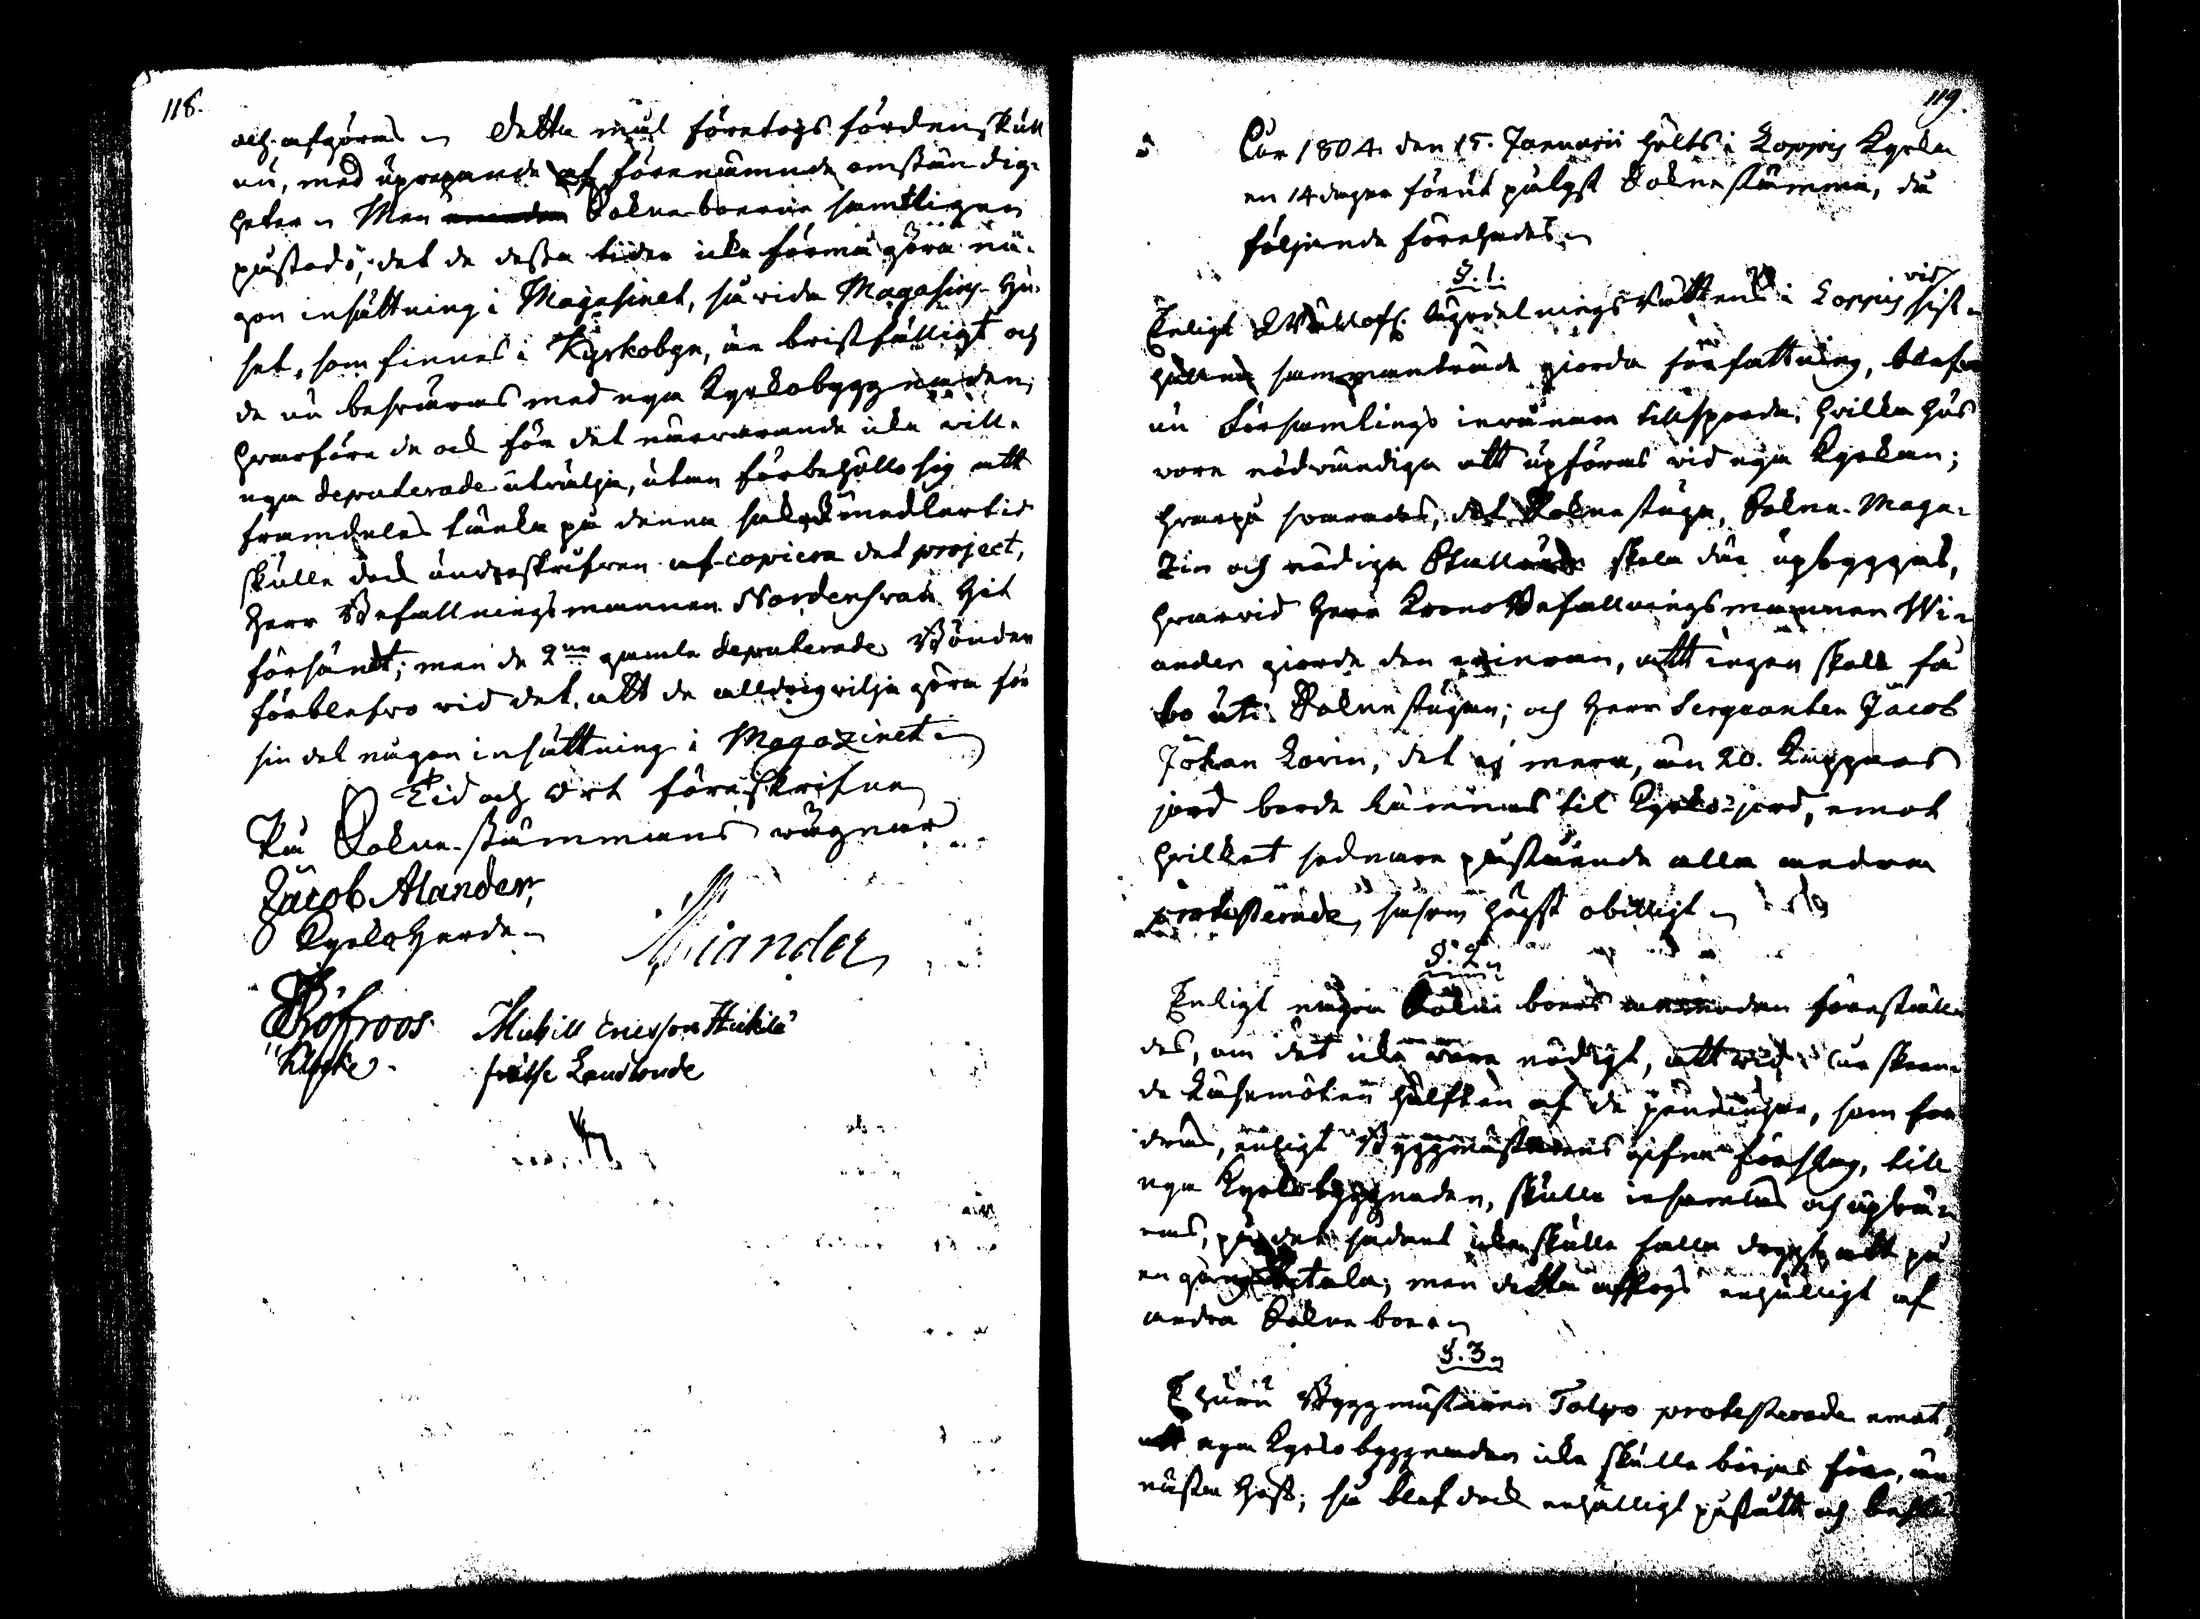 118.
och afgöras Detta mål företogs fördenskull
nu, med uprepande af förenämnde omständig-
heter Men Sokneboerne samtligen
påstodo, det de dessa tider icke förmå göra nå-
gon insättning i Magasinet, så vida Magasins-hu-
set, som finnes i Kyrkobyn, är bristfälligt och
de nu besväras med nya Kyrkobyggnaden;
hvarföre de ock för det närvarande icke ville
nya deputerade utvälja, utan förbehöllo sig att
framdeles tänka på denna sak, imedlertid
skulle dock underskrifven af-copiera det project,
Herr Befallningsmannen Nordensvan hit
försändt; men de 2ne gamla deputerade Bönder
förblefvo vid det, att de alldrig vilja göra för
sin del någon insättning i Magazinet
Tid och Ort föreskrifne
På Sokne-stämmans vägnar
Jacob Alander,
Kyrkoherde
Wiander
Höfroos.
Klockare
Mickill Ericsson Heickilä
frälse Landbonde
119.
År 1804 den 15. Januarii hölts i Loppis Kyrka
en 14 dagar förut pålyst Sokne stämma, då
följande förehades
§. 1.
Enligt Wällofl. Ägodelnings Rättens i Loppis vid sist
hållne sammanträde giorda författning, blefvo
nu Församlings invånare tillsporde, hvilka hus
vore nödvändiga att upföras vid nya Kyrkan;
hvarpå svarades, det Sokne stuga, Sokne-Maga-
zin och nödiga Stall skola där upbyggas,
hvarvid Herr Krono Befallningsmannen Wi-
ander giorde den erinran, att ingen skall få
bo uti Soknestugan; och Herr Sergeanten Jacob
Johan Lorin, det ej mera, än 20. Kappars
jord borde lämnas til Kyrko-jord, emot
hvilket sednare påstående alla andra
protesterade, såsom högst obilligt
§. 2
Enligt några Sokne boers anmodan föreställ-
des, om det icke vore nödigt, att vid skeen-
de hälften af de penningar, som for-
dras, enligt Byggmästarens gifne förslag, till
nya Kyrkobyggnaden, skulle insamlas och upbä-
ras, på det sådant icke skulle falla drygt, att på
en gång betala; men detta afslogs enhälligt af
andra Sokneboer
§. 3
Ehuru Byggmästaren Talpo protesterade emot,
att nya Kyrkobyggnaden icke skulle börjas förr, än
nästa höst; så blef dock enhälligt påstådt och beslu-